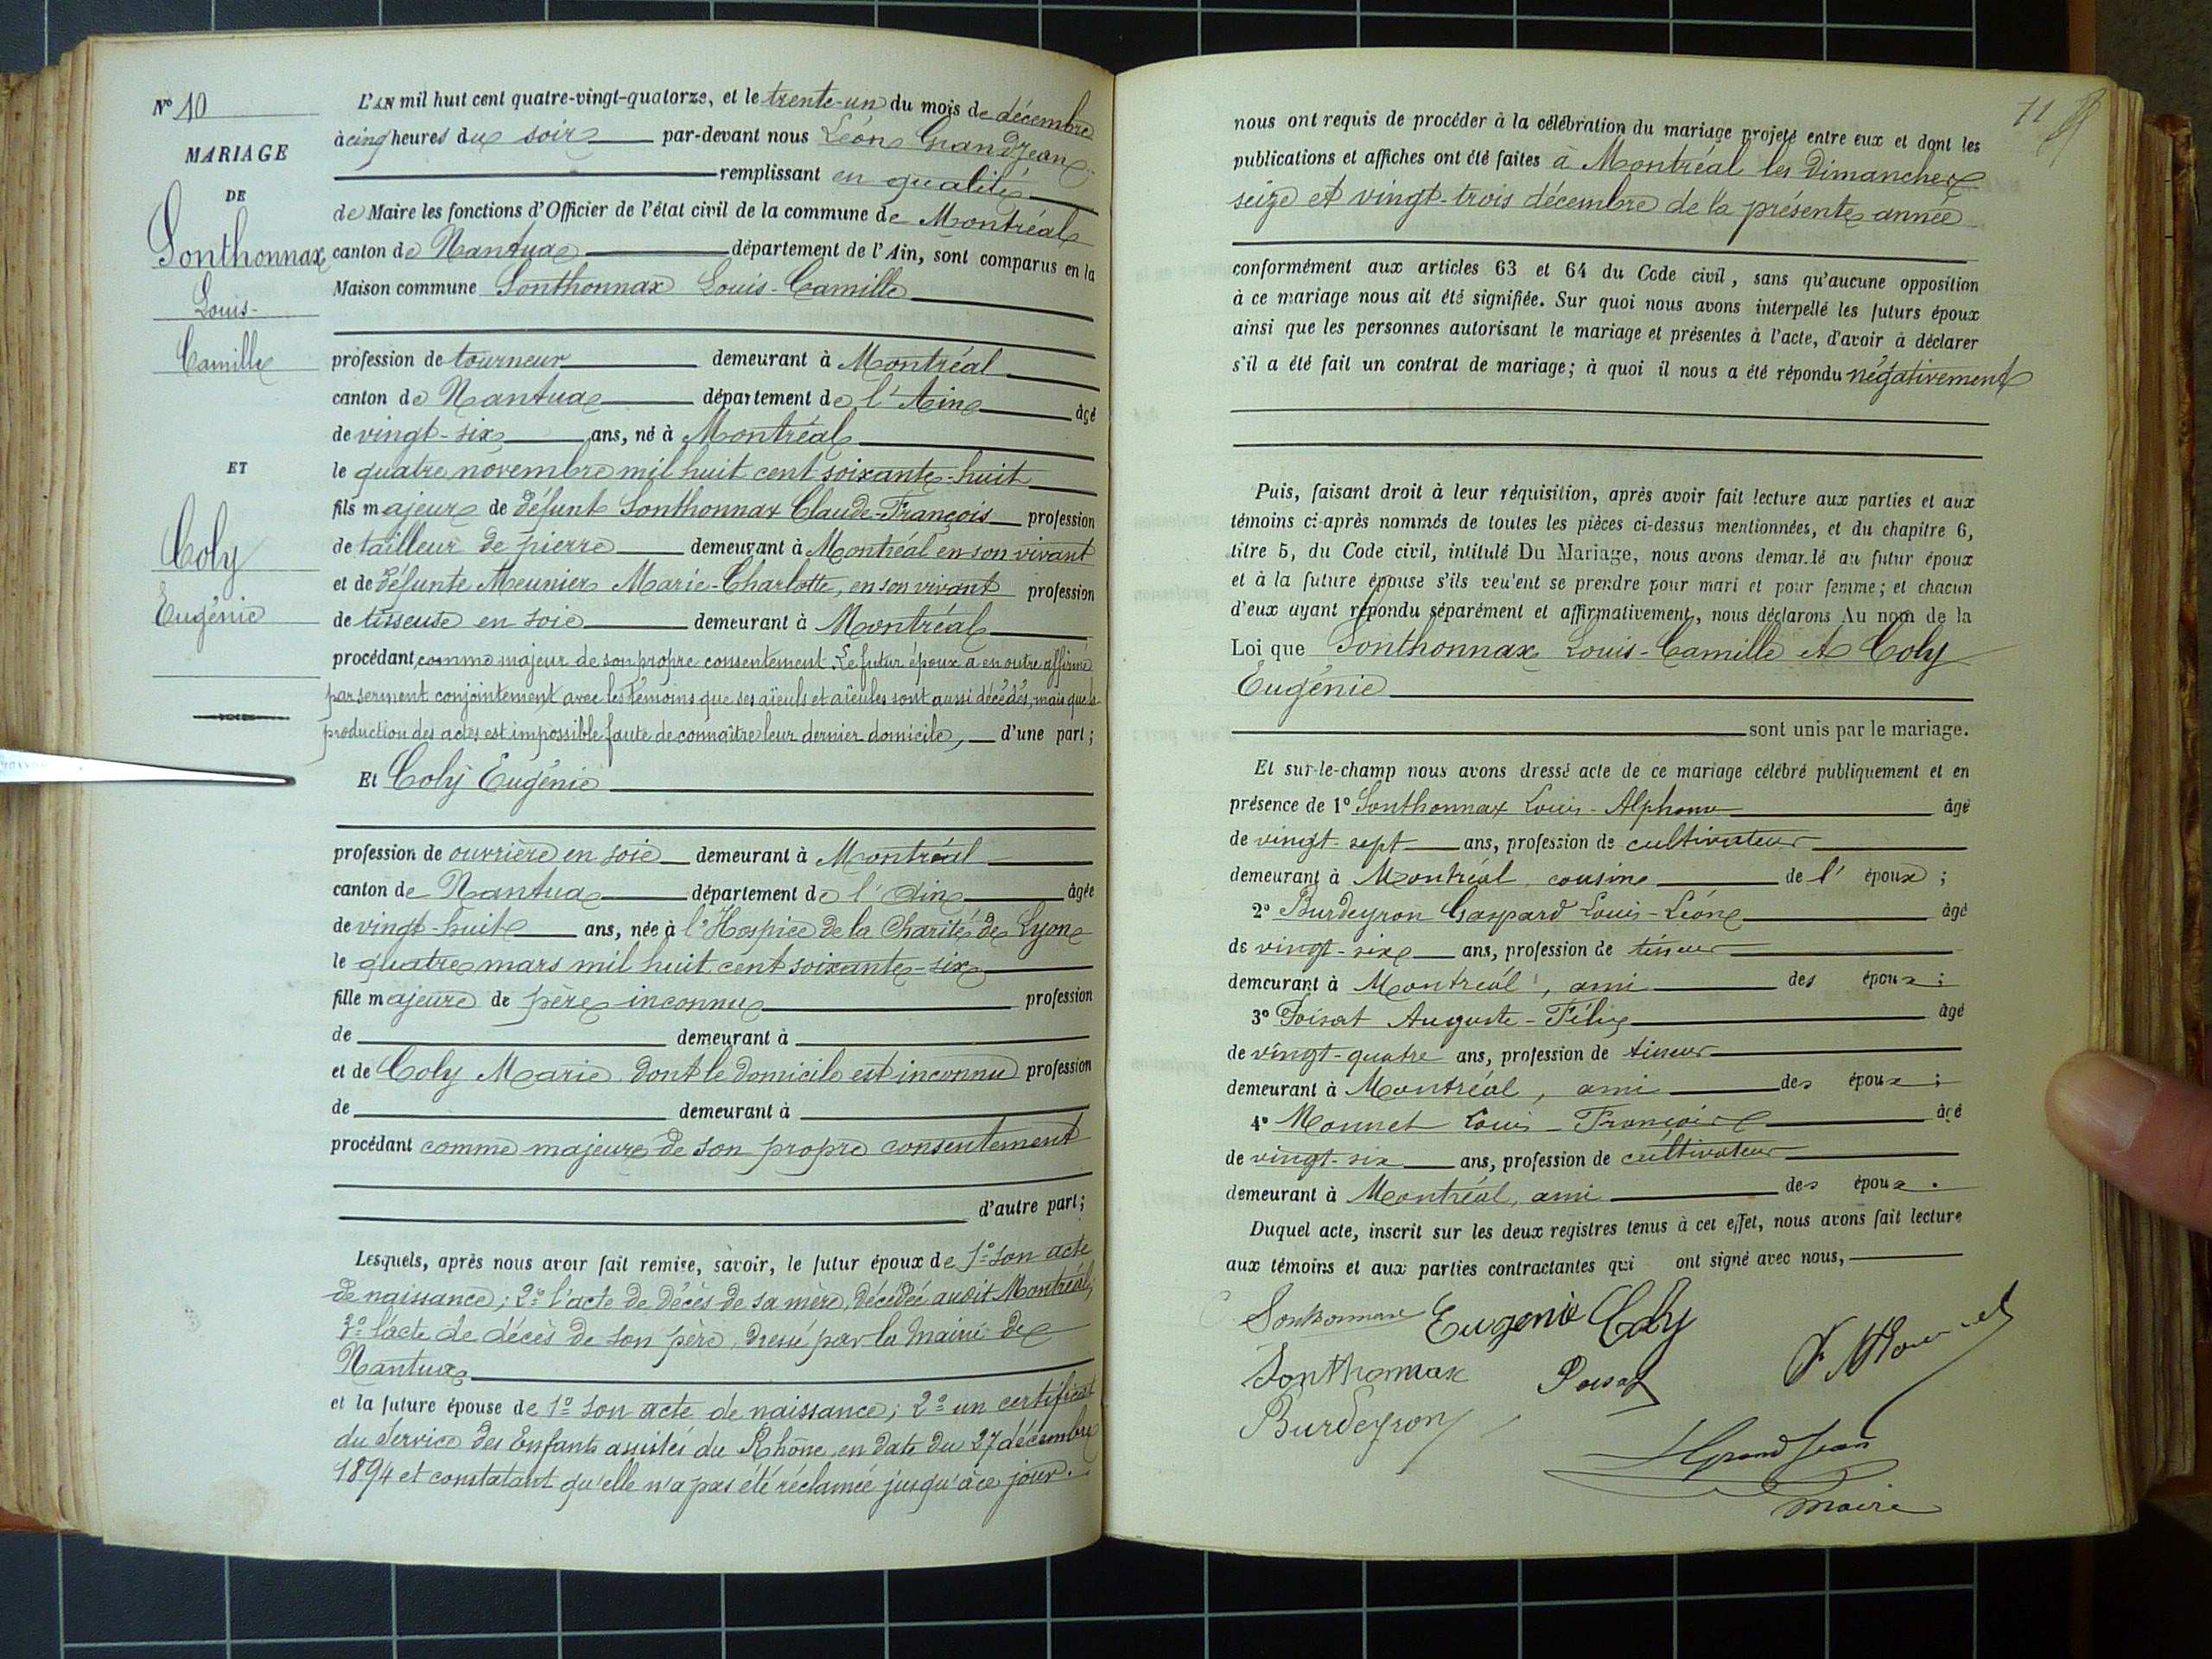 N° 10
MARIAGE
DE
Sonthonnax
Louis-
Camille
ET
Coly
Eugénie
L'AN mil huit cent quatre-vingt-quatorze, et le trente-un du mois de décembre
à cinq heures du soir par-devant nous Léon Grandjean
remplissant en qualité
de Maire les fonctions d'Officier de l'état civil de la commune de Montréal
canton de Nantua département de l'Ain, sont comparus en la
Maison commune Sonthonnax Louis-Camille
profession de tourneur demeurant à Montréal
canton de Nantua département de l'Ain âgé
de vingt-six ans, né à Montréal
le quatre novembre mil huit cent soixante-huit
fils majeur de défunt Sonthonnax Claude-François profession
de tailleur de pierre demeurant à Montréal en son vivant
et de défunte Meunier Marie-Charlotte, en son vivant profession
de tisseuse en soie demeurant à Montréal
procédant comme majeur de son propre consentement. Le futur époux a en outre affirmé
par serment conjointement avec les témoins que ses aïeuls et aïeules sont aussi décédés, mais que la
production des actes est impossible faute de connaître leur dernier domicile, d'une part;
Et Coly Eugénie
profession de ouvrière en soie demeurant à Montréal
canton de Nantua département de l'Ain âgée
de vingt-huit ans, née à l'Hospice de la Charité de Lyon
le quatre mars mil huit cent soixante-six
fille majeure de père inconnu profession
de demeurant à
et de Coly Marie dont le domicile est inconnu profession
de demeurant à
procédant comme majeure de son propre consentement
d'autre part;
Lesquels, après nous avoir fait remise, savoir, le futur époux de 1° son acte
de naissance; 2° l'acte de décès de sa mère, décédée audit Montréal;
3° l'acte de décès de son père, dressé par la mairie de
Nantua
et la future épouse de 1° son acte de naissance; 2° un certificat
du Service des Enfants assistés du Rhône en date du 27 décembre
1894 et constatant qu'elle n'a pas été réclamée jusqu'à ce jour.
11
nous ont requis de procéder à la célébration du mariage projeté entre eux et dont les
publications et affiches ont été faites à Montréal les dimanches
seize et vingt-trois décembre de la présente année
conformément aux articles 63 et 64 du Code civil, sans qu'aucune opposition
à ce mariage nous ait été signifiée. Sur quoi nous avons interpellé les futurs époux
ainsi que les personnes autorisant le mariage et présentes à l'acte, d'avoir à déclarer
s'il a été fait un contrat de mariage; à quoi il nous a été répondu négativement
Puis, faisant droit à leur réquisition, après avoir fait lecture aux parties et aux
témoins ci-après nommés de toutes les pièces ci-dessus mentionnées, et du chapitre 6,
titre 5, du Code civil, intitulé Du Mariage, nous avons demandé au futur époux
et à la future épouse s'ils veulent se prendre pour mari et pour femme; et chacun
d'eux ayant répondu séparément et affirmativement, nous déclarons Au nom de la
Loi que Sonthonnax Louis-Camille et Coly
Eugénie
sont unis par le mariage.
Et sur-le-champ nous avons dressé acte de ce mariage célébré publiquement et en
présence de 1° Sonthonnax Louis-Alphonse âgé
de vingt-sept ans, profession de cultivateur
demeurant à Montréal, cousin de l'époux;
2° Burdeyron Gaspard Louis-Léon âgé
de vingt-six ans, profession de tisseur
demeurant à Montréal, ami des époux;
3° Poisat Auguste-Félix âgé
de vingt-quatre ans, profession de tisseur
demeurant à Montréal, ami des époux;
4° Monnet Louis-François âgé
de vingt-six ans, profession de cultivateur
demeurant à Montréal, ami des époux.
Duquel acte, inscrit sur les deux registres tenus à cet effet, nous avons fait lecture
aux témoins et aux parties contractantes qui ont signé avec nous,
Sonthonnax Eugénie Coly
Sonthonnax Poisat F Monnet
Burdeyron
L Grandjean
maire